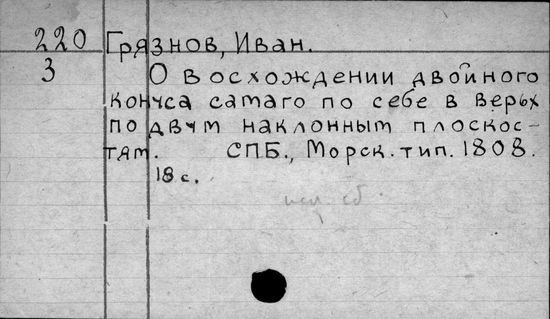 220 Грязнов, Иван.
3 О восхождении двойного
конуса самаго по себе в верьх
по двум наклонным плоскос-
тям. СПБ., Морск. тип. 1808.
18 с.